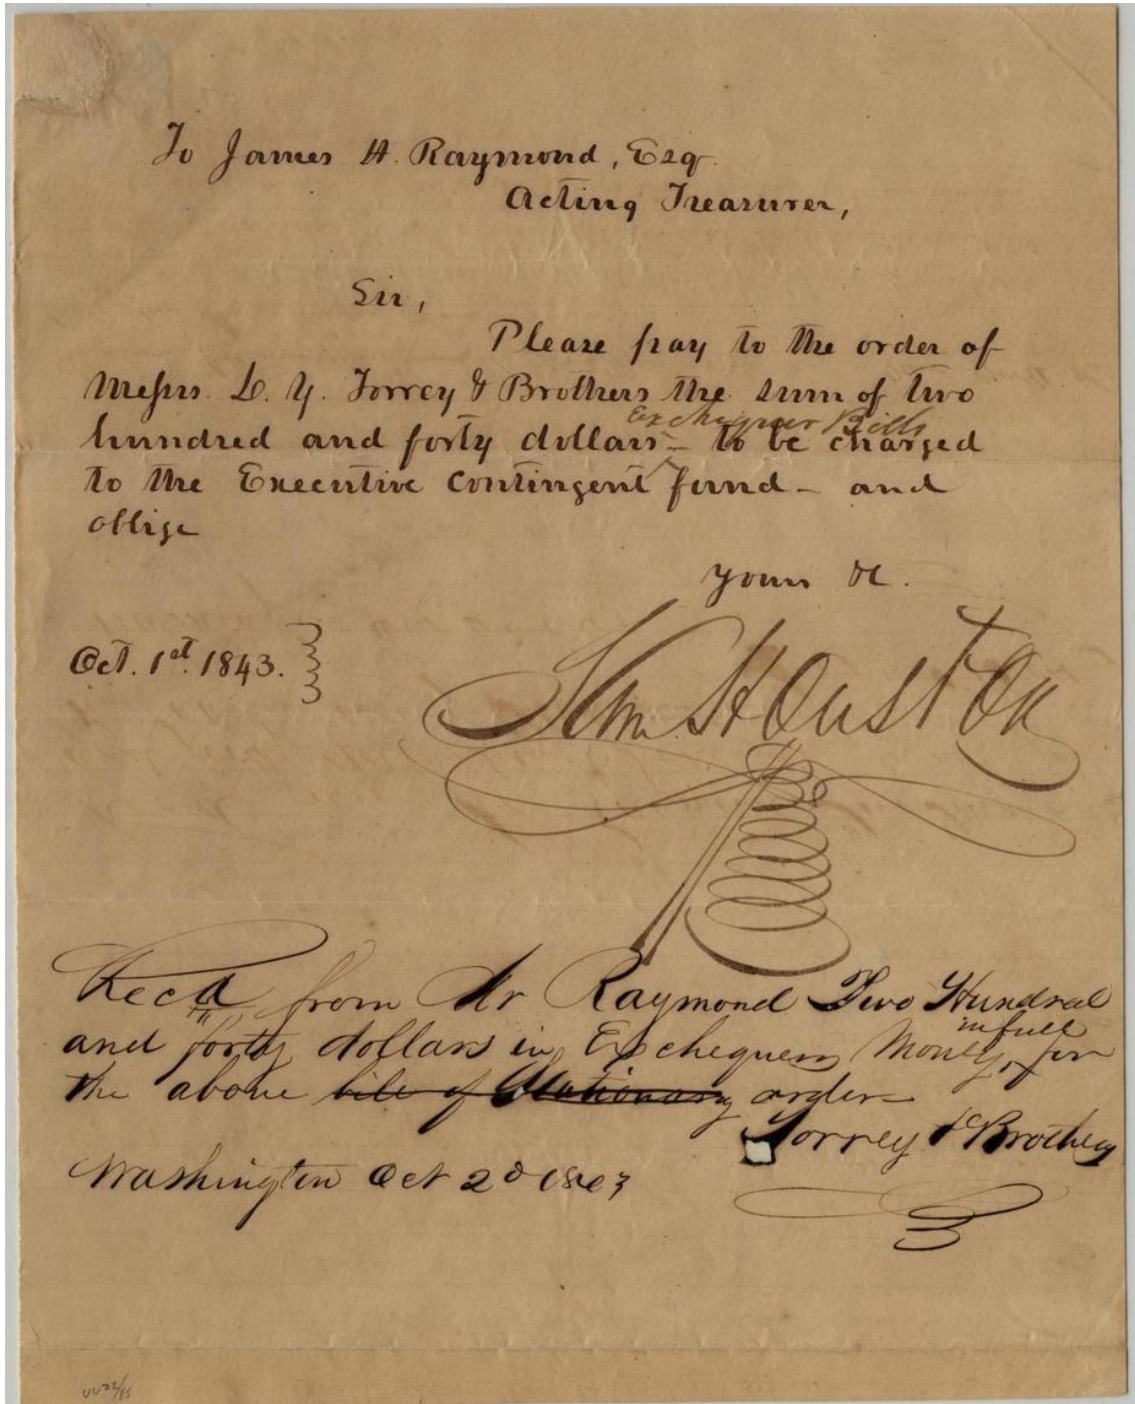 To James H. Raymond, Esq.
Acting Treasurer,
Sir,
Please pay to the order of
Messrs. D. Y. Torrey & Brothers the sum of two
Exchequer Bills
hundred and forty dollars – to be charged
to the Executive contingent fund – and
oblige
yours &c.
Oct. 1st. 1843.
Sam Houston
Recd from Mr Raymond Two Hundred
in full
and forty dollars in Exchequer Money, for
the above bill of Stationary order
Torrey & Brothers
Washington Oct 2d 1843